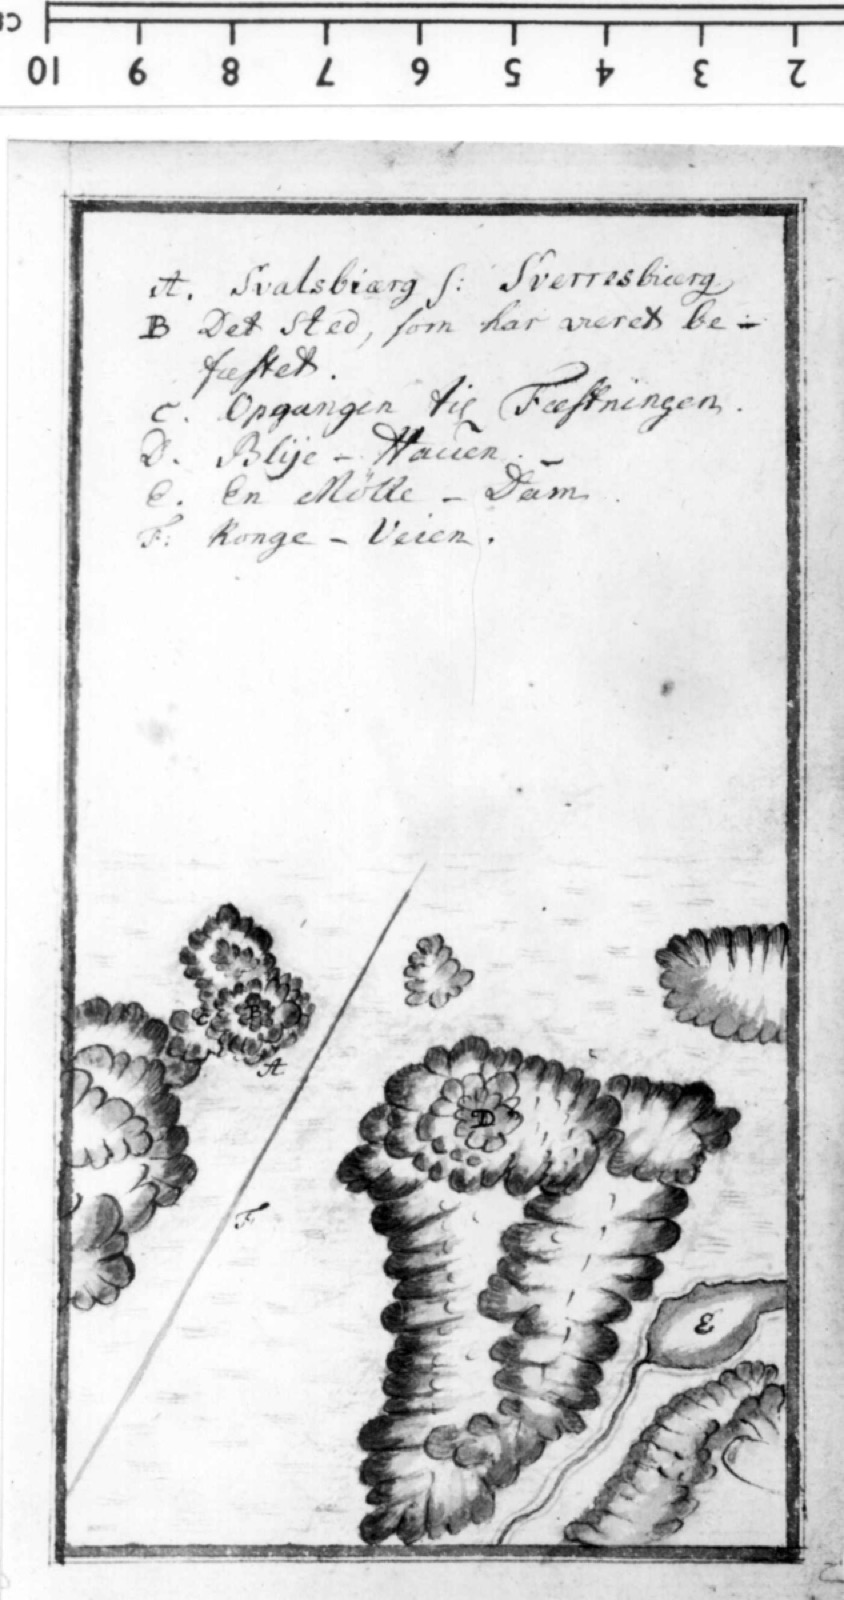 10 9 8 7 6 5 4 3 2
A. Svalsbiærg s: Sverresbiærg
B Det Sted, som har været be-
fæstet.
C. Opgangen til Fæstningen.
D. Blije-Hauen.
E. En Mölle-Dam.
F: Konge-Veien.
B
C
A
D
F
E